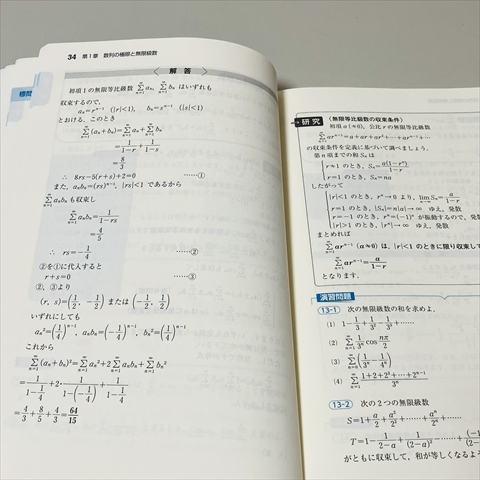 34 第1章 数列の極限と無限級数
標問
解答
初項1の無限等比級数 ∑_{n=1}^{∞} a_n, ∑_{n=1}^{∞} b_n はいずれも
収束するので,
a_n=r^{n-1} (|r|<1), b_n=s^{n-1} (|s|<1)
とおける. このとき
∑_{n=1}^{∞}(a_n+b_n)=∑_{n=1}^{∞}a_n+∑_{n=1}^{∞}b_n
=1/(1-r)+1/(1-s)
=8/3
∴ 8rs-5(r+s)+2=0 ……①
また, a_nb_n=(rs)^{n-1}, |rs|<1 であるから
∑_{n=1}^{∞}a_nb_n も収束し
∑_{n=1}^{∞}a_nb_n=1/(1-rs)
=4/5
∴ rs=-1/4 ……②
②を①に代入すると
r+s=0 ……③
②, ③より
(r, s)=(1/2, -1/2) または (-1/2, 1/2)
いずれにしても
a_n²=(1/4)^{n-1}, a_nb_n=(-1/4)^{n-1}, b_n²=(1/4)^{n-1}
これから
∑_{n=1}^{∞}(a_n+b_n)²=∑_{n=1}^{∞}a_n²+2∑_{n=1}^{∞}a_nb_n+∑_{n=1}^{∞}b_n²
=1/(1-1/4)+2・1/(1-(-1/4))+1/(1-1/4)
=4/3+8/5+4/3=64/15
研究 〈無限等比級数の収束条件〉
初項 a(≠0), 公比 r の無限等比級数
∑_{n=1}^{∞}ar^{n-1}=a+ar+ar²+……+ar^{n-1}+……
の収束条件を定義に基づいて調べましょう.
第 n 項までの和 S_n は
r≠1 のとき, S_n=a(1-r^n)/(1-r)
r=1 のとき, S_n=na
したがって
|r|<1 のとき, r^n→0 より, lim_{n→∞}S_n=a/(1-r)
r=1 のとき, |S_n|=n|a|→∞ ゆえ, 発散
r=-1 のとき, r^n=(-1)^n が振動するので, 発散
|r|>1 のとき, |r^n|→∞ ゆえ, 発散
まとめれば
∑_{n=1}^{∞}ar^{n-1} (a≠0) は, |r|<1 のときに限り収束して
∑_{n=1}^{∞}ar^{n-1}=a/(1-r)
となります.
演習問題
13-1 次の無限級数の和を求めよ.
(1) 1-1/3+1/3²-1/3³+……
(2) ∑_{n=1}^{∞}1/3^n cos nπ/2
(3) ∑_{n=0}^{∞}(1/3^n-1/4^n)
(4) ∑_{n=1}^{∞}(1+2+2²+…+2^{n-1})/3^n
13-2 次の2つの無限級数
S=1+a/2+a²/2²+……+a^n/2^n+……
T=1-1/(2-a)+1/(2-a)²-……+(-1)
がともに収束して, 和が等しくなるよう